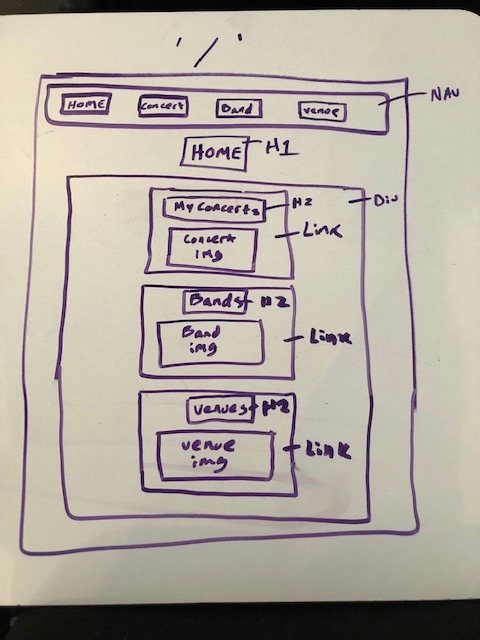 '/'
HOME Concert Band venue NAV
HOME H1
Div
My Concerts H2
Concert
img
Link
Bands H2
Band
img
Link
venues H2
venue
img
Link